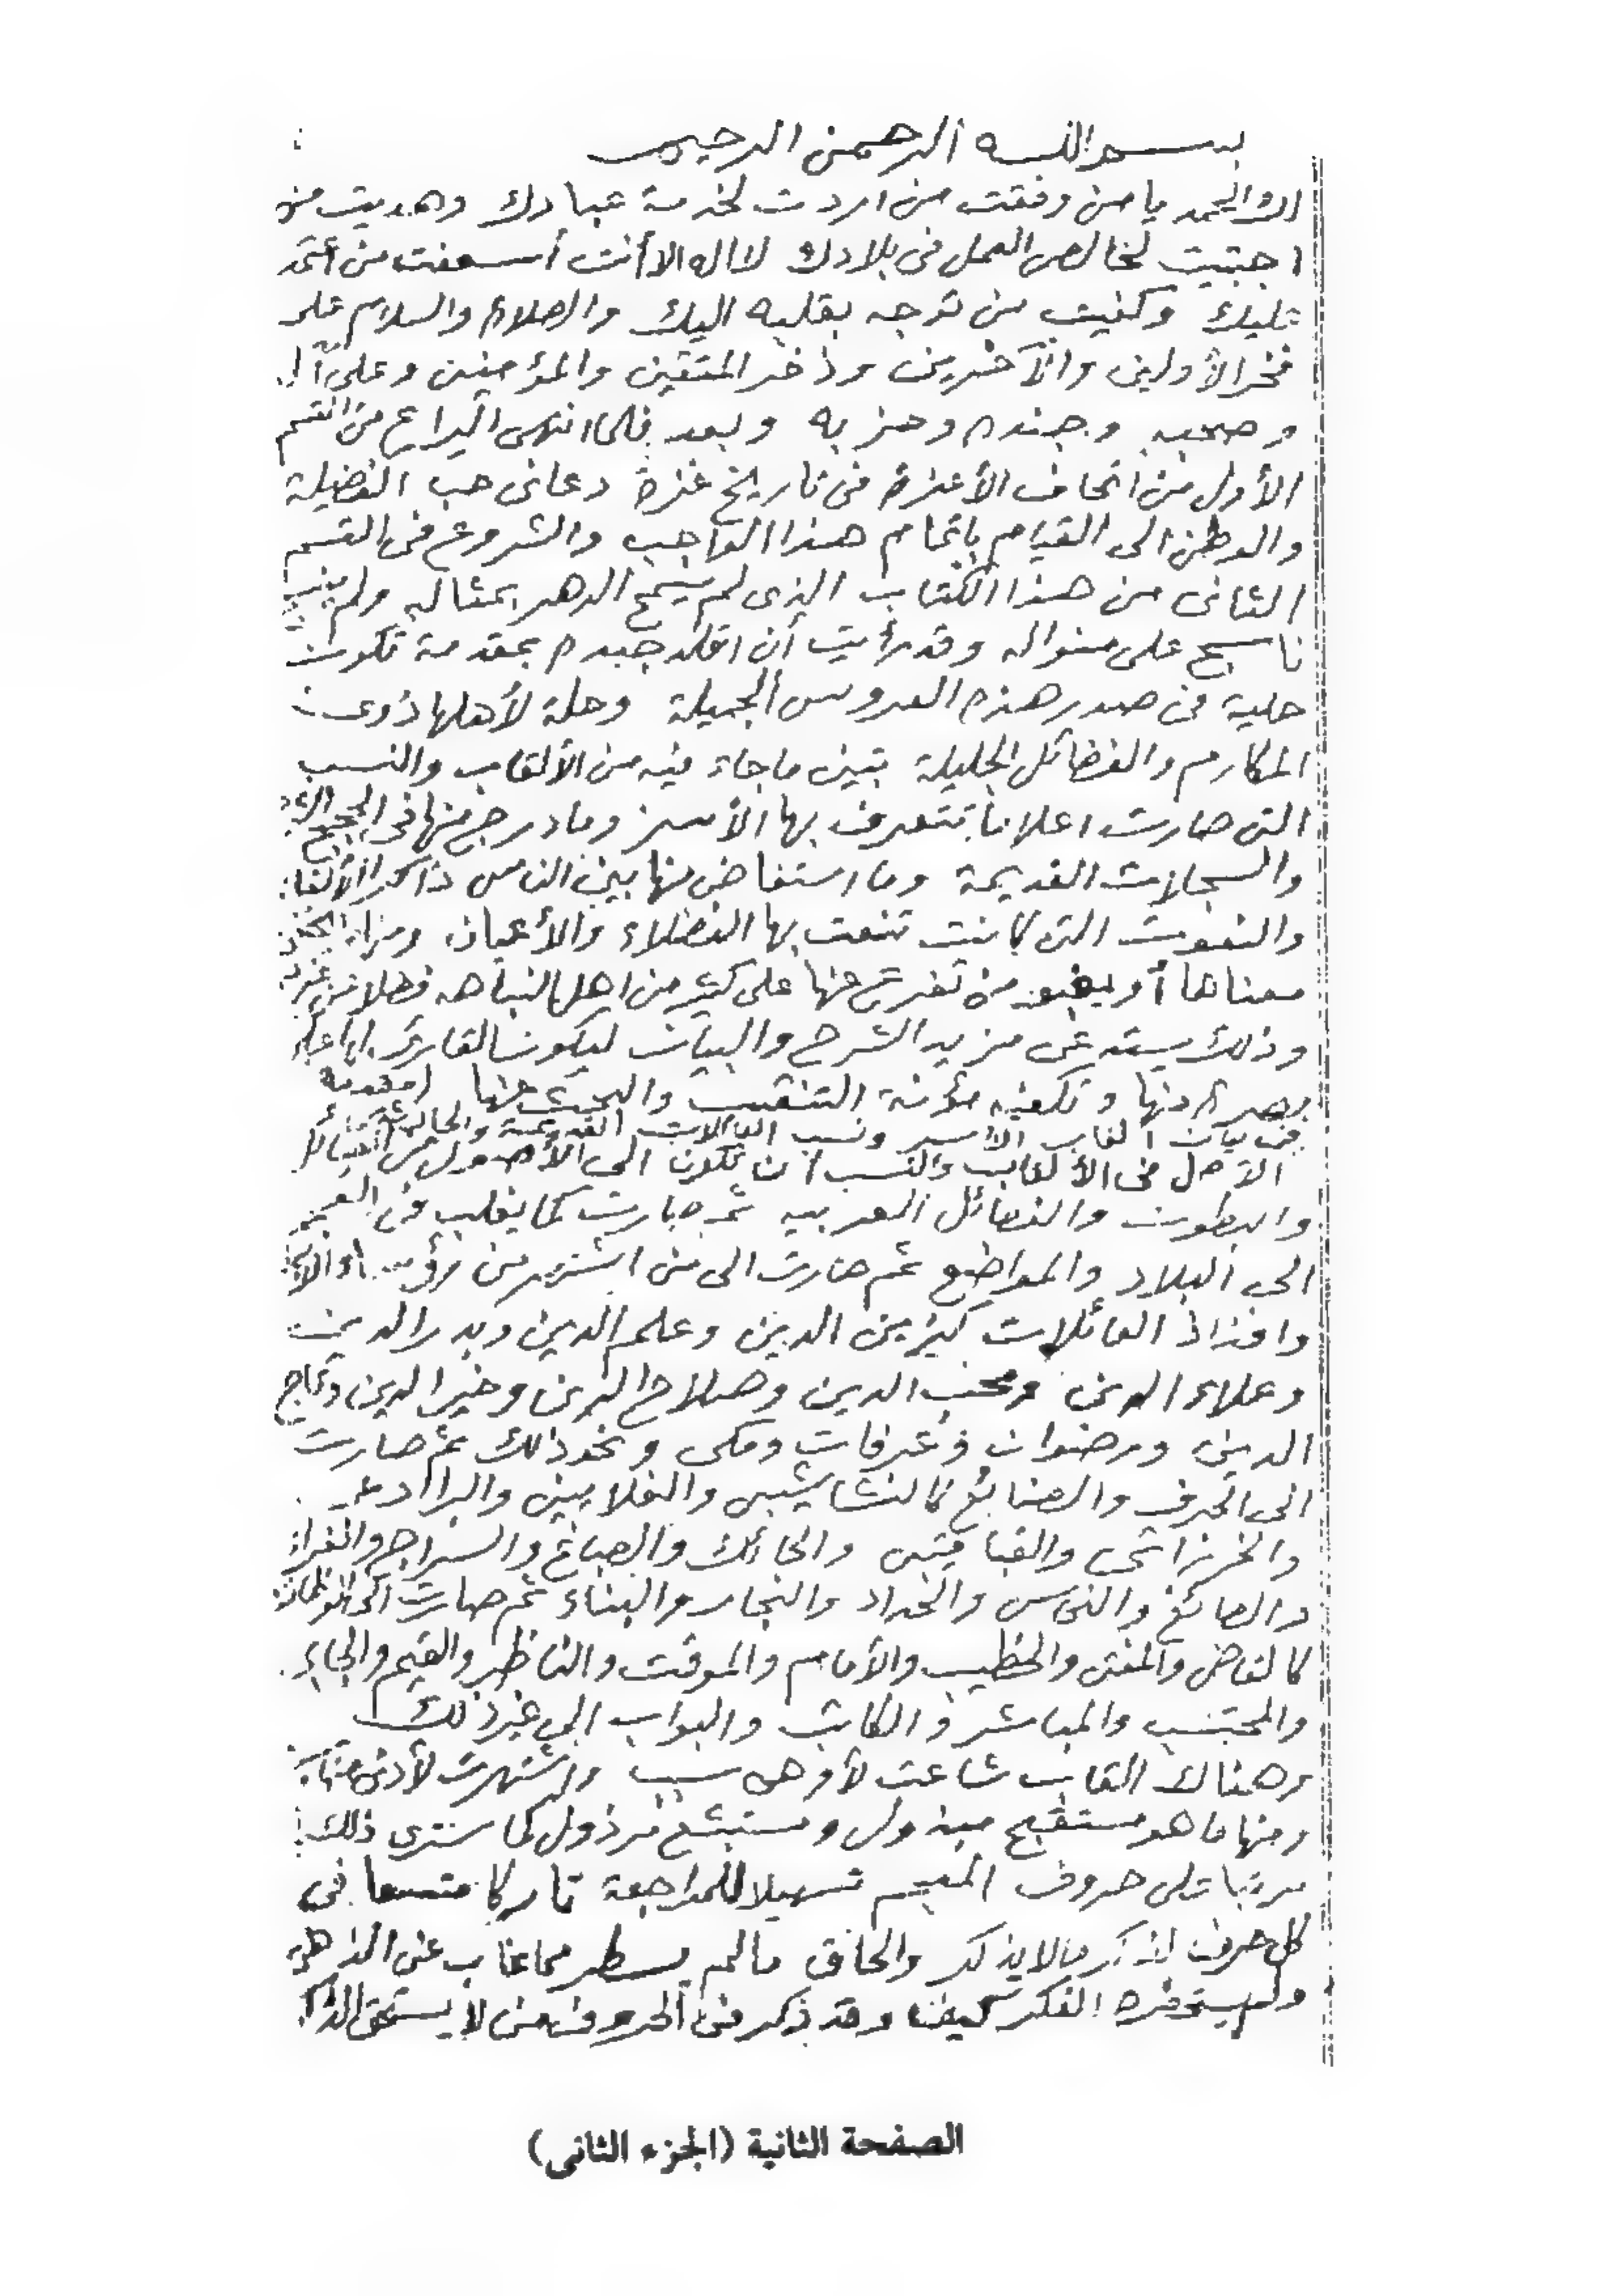 بسم الله الرحمن الرحيم
لك الحمد يا من وفقت من اردت لخدمة عبادك وهديت من
اجتبيت لخالص العمل في بلادك لا اله الا أنت أسعفت من أعتمد
عليك وكفيت من توجه بقلبه اليك والصلاة والسلام على
فخر الأولين والآخرين وذخر المتقين والمؤمنين وعلى آله
وصحبه وجنده وحزبه وبعد فلما انتهى اليراع من القسم
الأول من اتحاف الأعزة في تاريخ غزة دعاني حب الفضيلة
والوطن الى القيام باتمام هذا الواجب والشروع في القسم
الثاني من هذا الكتاب الذي لم يسمح الدهر بمثاله ولم ينسج
ناسج على منواله وقد رأيت أن اقلد جيده بمقدمة تكون
حلية في صدر هذه العروس الجميلة وحلة لأهلها ذوى
المكارم والفضائل الجليلة تبين ما جاء فيه من الألقاب والنسب
التى صارت اعلاما تتعرف بها الأسر وما درج منها في الحجج
والسجلات القديمة وما استفاض منها بين الناس ذاكرا الألقاب
والنعوت التى كانت تنعت بها الفضلاء والأعيان
معناها أو على كثير من اهل النباهه فضلا عن غيرهم
وذلك يستدعى مزيد الشرح والبيان ليكون القارئ على
بصيرة منها وتكفيه مؤنة التنقيب والبحث عنها (مقدمة
في بيان القاب الأسر ونسب العائلات القديمة والحالية)
الأصل في الألقاب والنسب ان تكون الى الأصول من القبائل
والبطون والفصائل العربيه ثم صارت كما يغلب في العجم
الى البلاد والمواضع ثم صارت الى من اشتهر من رؤساء
وافذاذ العائلات كزين الدين وعلم الدين وبدر الدين
وعلاء الدين ومحب الدين وصلاح الدين وخير الدين وتاج
الدين ورضوان وعرفات ومكى ونحو ذلك ثم صارت
الى الحرف والصنايع كالنشاشيبى والغلايينى والبرادعى
والخزندار والقباقيبى والحائك والصباغ والسراج والفراء
والصائغ والنحاس والحداد والنجار والبناء ثم صارت الى الوظائف
كالقاضى والمفتى والخطيب والأمام والموقت والناظر والقيم والجابى
والمحتسب والمباشر والكاتب والبواب الى غير ذلك
وهناك القاب شاعت لأوهى سبب واشتهرت لأدنى مناسبة
ومنها ما هو مستقبح مبذول ومستبشع مرذول كما سترى ذلك
مرتبا على حروف المعجم تسهيلا للمراجعة تاركا متسعا في
كل حرف لذكر مالا يذكر والحاق مالم يسطر مما غاب عن الذهن
ولم يستحضره الفكر كيف وقد ذكر في الحروف من لا يستحق الذكر
الصفحة الثانية (الجزء الثاني)